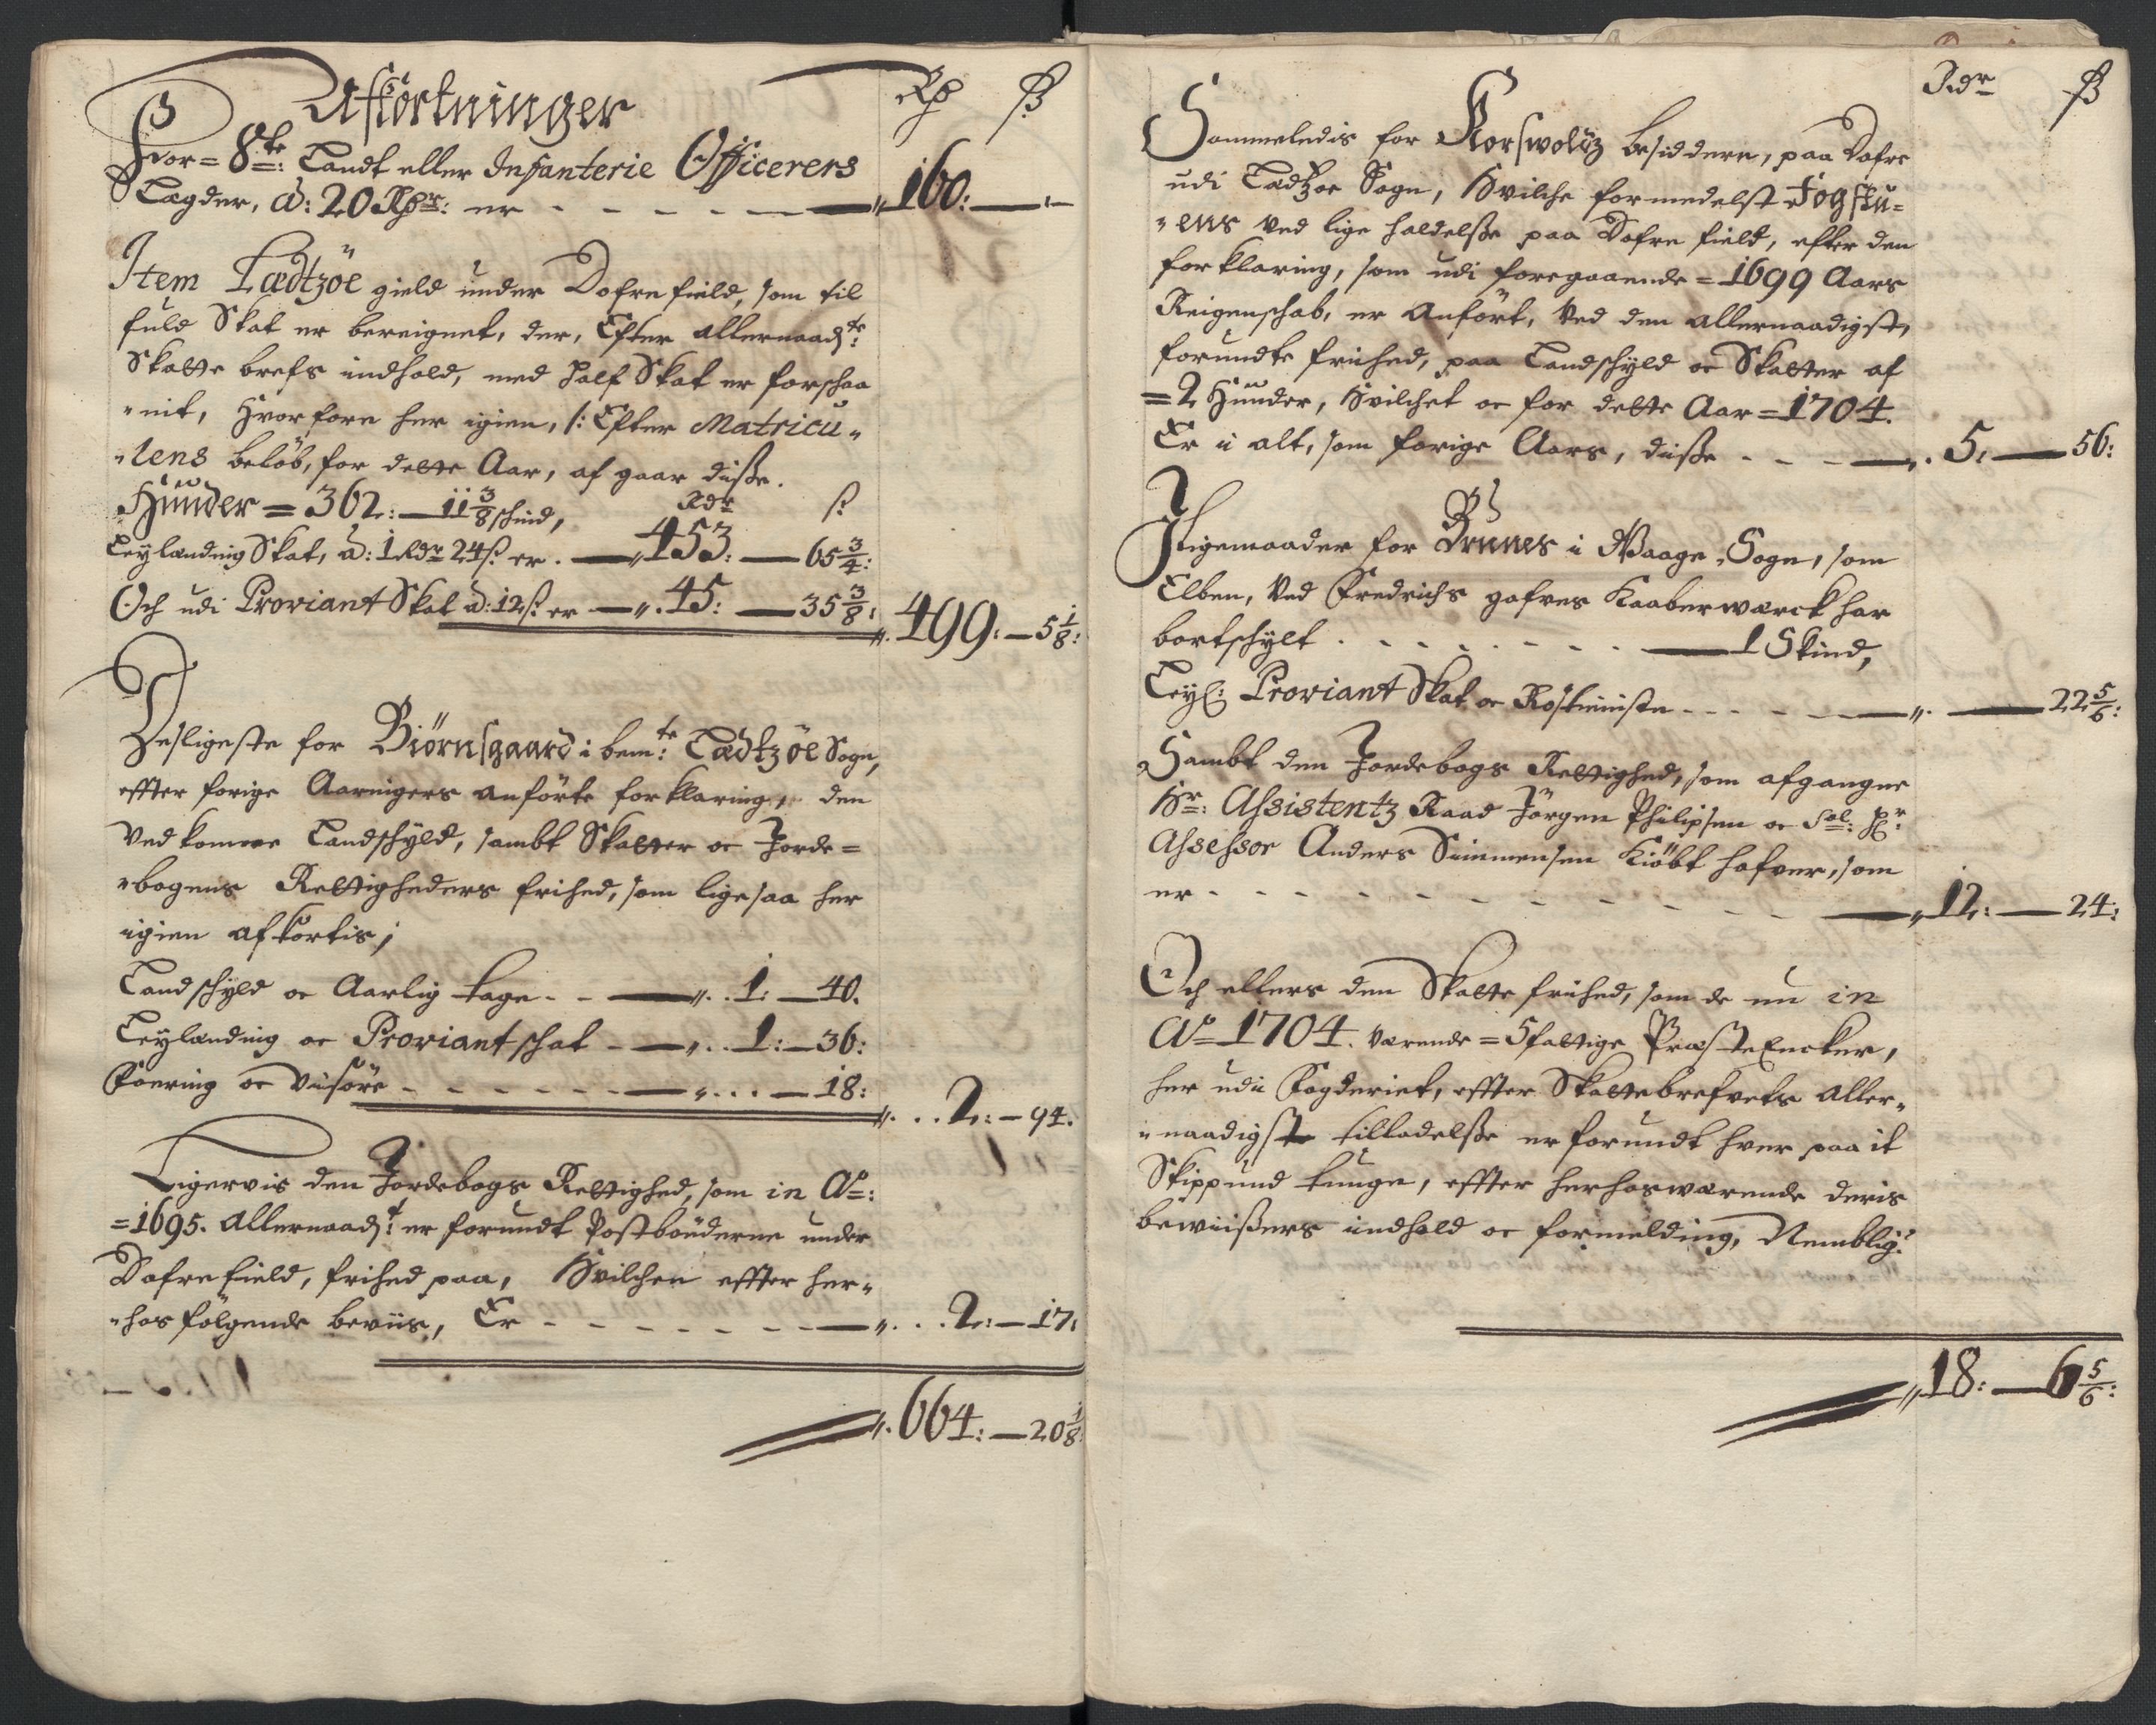 Afkortninger
Rdr ß
For = 8te: Landt eller Infanterie Officerers
Lægder, à: 20 Rdr: er - - - - 160: — " —
Item Lædtzöe gield under Dofrefield, som til
fuld Skat er bereignet, der, Efter allernaadste:
Skatte brefs indhold, med half Skat er forschaa
"nit, Hvorfore her igien, /: Efter Matricu"
"lens beløb, for dette Aar, af gaar disse.
Hünder = 362: — 11 3/8 schind, Rdr ß
Leylænding Skat, à: 1 Rdr 24 ß er . — 453: — 65 3/4:
Och udi Proviant Skat à: 12 ß er — 45: — 35 3/8: 499: — 5 1/8:
Desligeste for Biörnsgaard i bemte: Lædtzöe Sogn,
effter forige Aaringers anförte forklaring, den
Vedkommer Landschyld, sambt Skatter oc Jorde=
"bogens Rettigheders frihed, som lige saa her
igien afkortis;
Landschyld oc Aarlig tage - - — 1: — 40.
Leylænding oc Proviant schat - — 1: — 36:
Foering oc Viisöre - - - - - — 18: 2: — 94.
Ligervis den Jordebogs Rettighed, som in Ao:
=1695. Allernaadst: er forundt Postbönderne under
Dofrefield, frihed paa, Hvilchen effter her"
"hos fölgende beviis, Er - - - - - - — 2: — 17:
664: — 20 1/8:
Rdr ß
Sammeledis for Korswolds besiddere, paa Dofre
udi Lædtzöe Sogn, Hvilche formedelst Fogstu=
"ens ved lige holdelsse paa Dofre field, efter den
forklaring, som udi foregaaende = 1699 Aars
Reigenschab, er Anfört, Ved den allernaadigst,
forundte friihed, paa Landschyld oc Skatter af
= 2 Hünder, Hvilchet oc for dette Aar = 1704.
Er i alt, som forige Aars, disse - - - — 5: — 56:
Ligemaader for Brunes i Waage Sogn, som
Elben, Ved Fredrichs gafves Kaaberwærck har
bortschylt . - - - - - — 1 Skind,
Leyl: Proviant Skat oc Rostieniste - - - - — 22 5/6:
Sambt den Jordebogs Rettighed, som afgangne
Hr: Assistentz Raad Jörgen Philipsen oc Sal: Hr:
Assessor Anders Simmensen Kiöbt hafver, som
er - - - - - - - - - — 12: — 24:
Och ellers den Skatte friihed, som de nu in
Ao 1704. værende = 5 fattige Præste Encker,
her udi Fogderiet, effter Skattebrefvets Aller"
"naadigste tilladelsse er forundt hver paa it
Skippund tunge, effter herhosværende deris
bewiissers indhold oc formelding, Nemblig:
18: — 6 5/6: